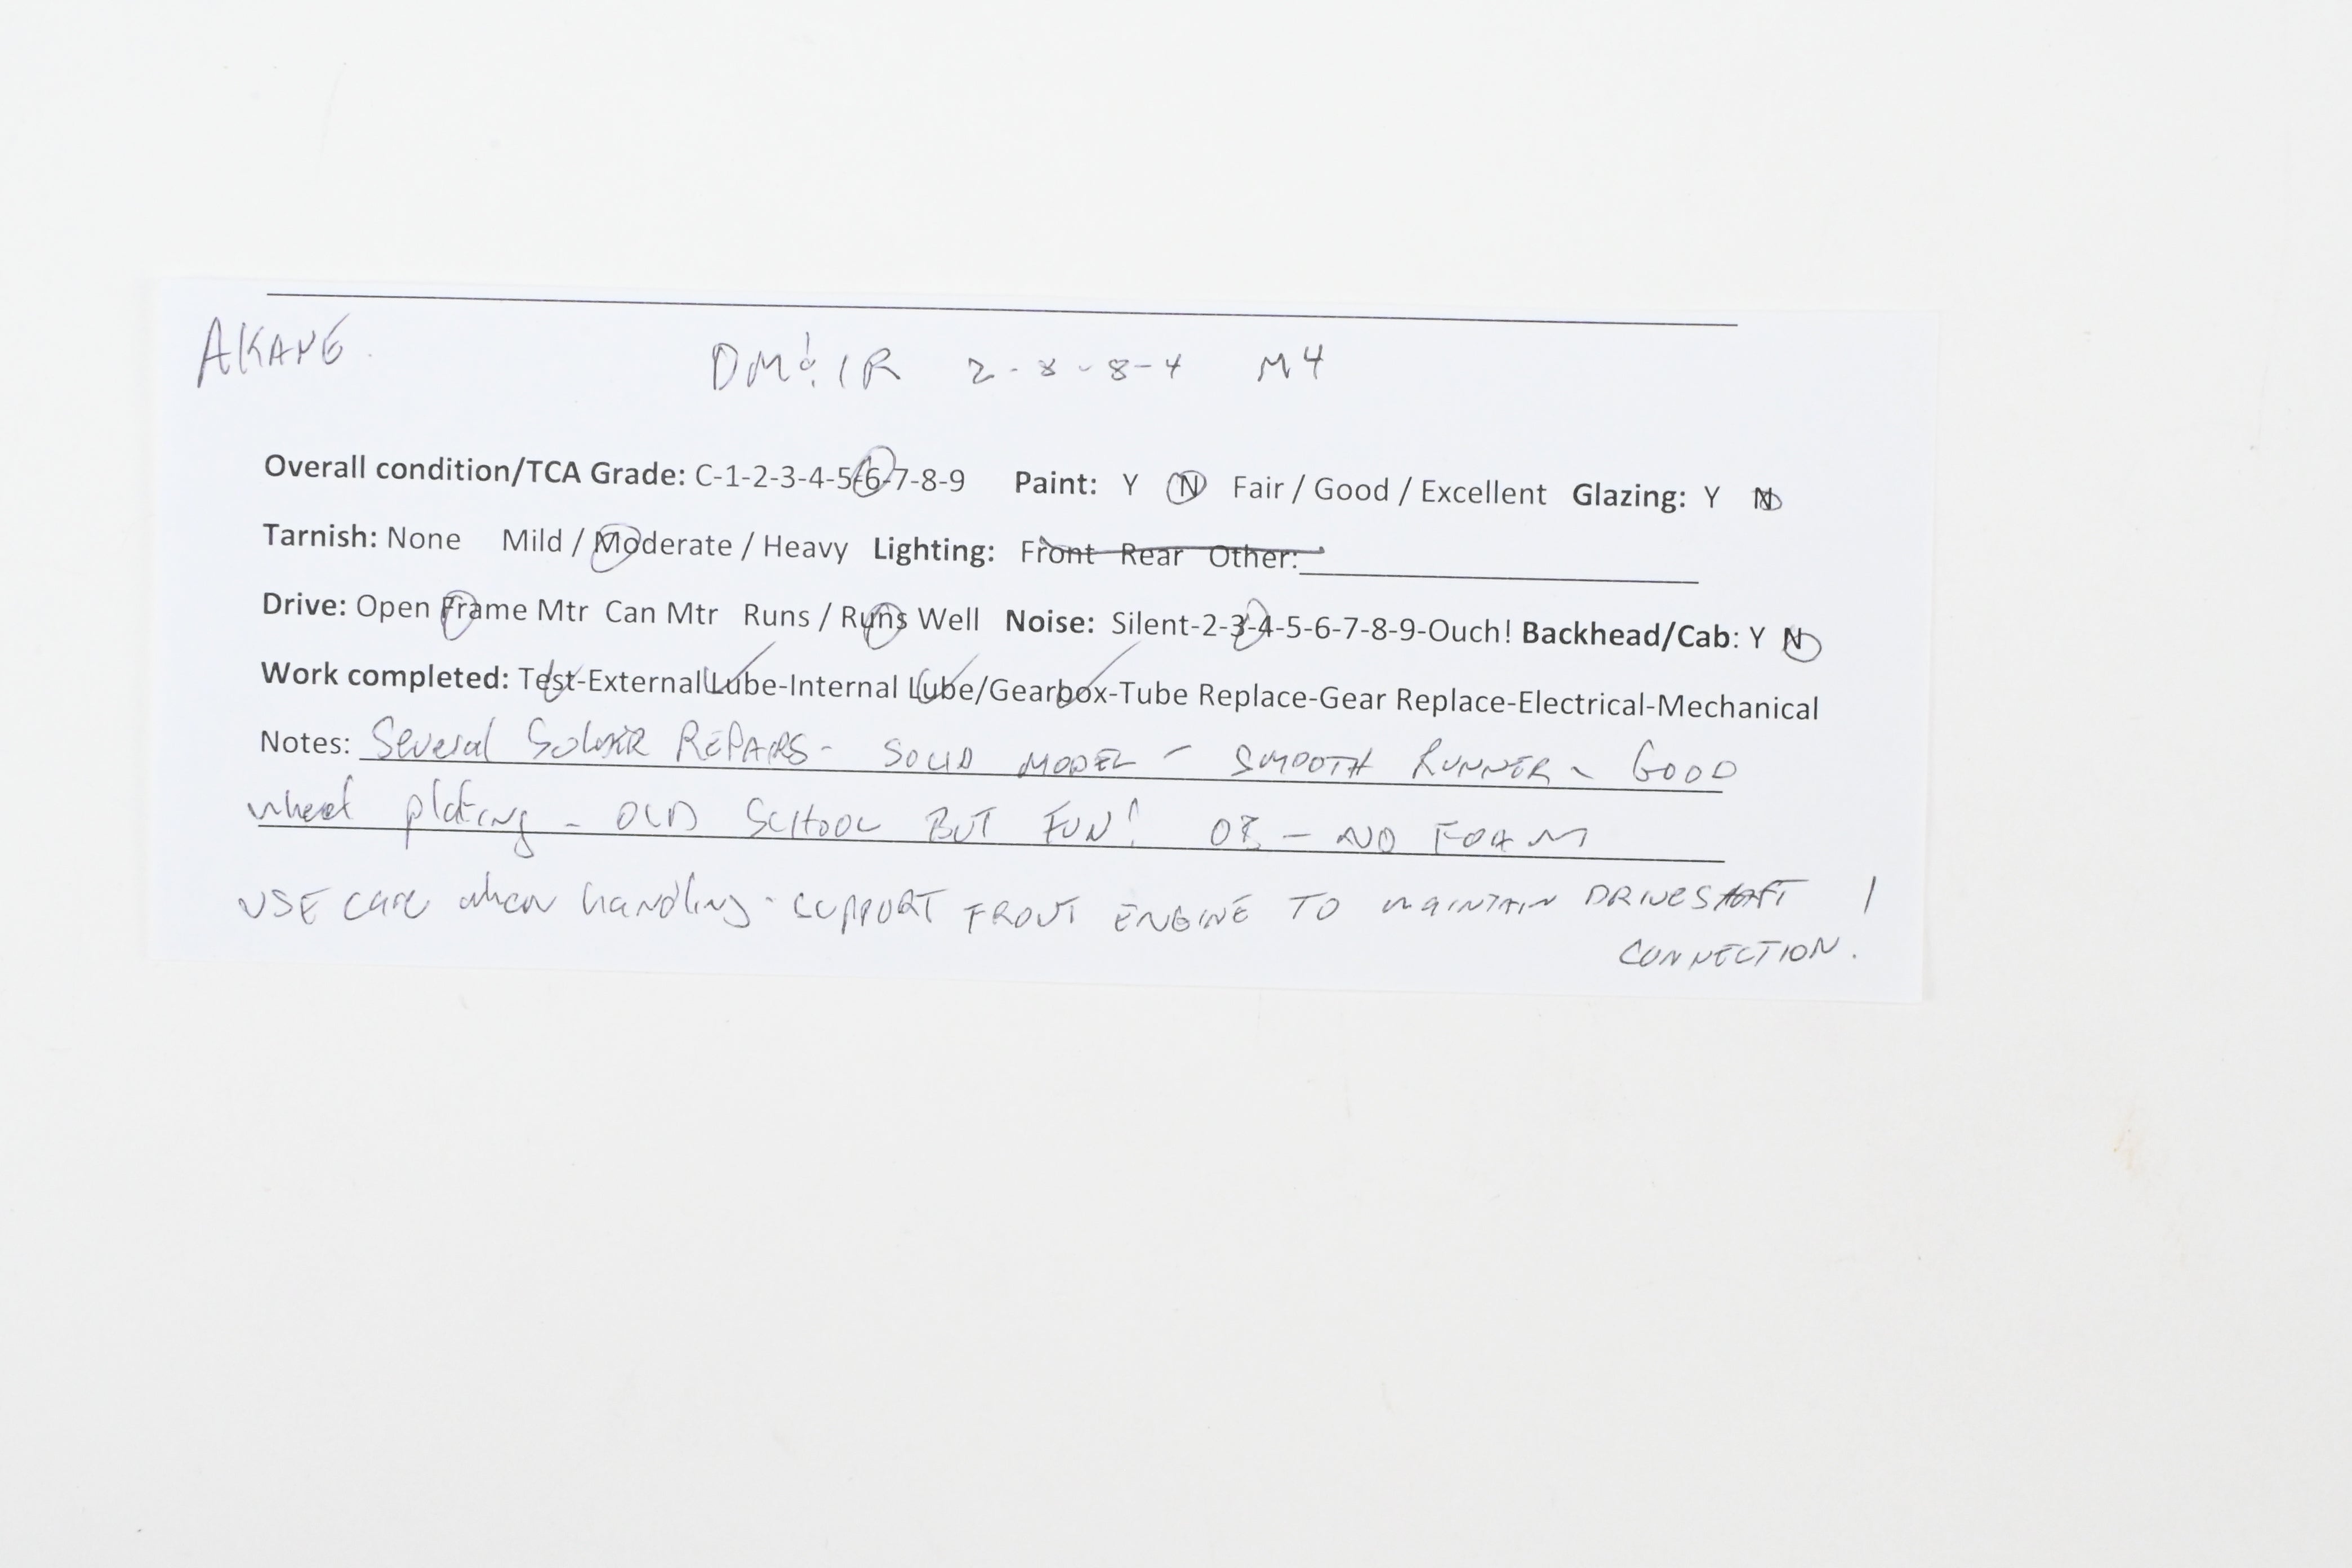 AKANE. DM&IR 2-8-8-4 M4
Overall condition/TCA Grade: C-1-2-3-4-5-6-7-8-9 Paint: Y N Fair / Good / Excellent Glazing: Y N
Tarnish: None Mild / Moderate / Heavy Lighting: Front Rear Other:
Drive: Open Frame Mtr Can Mtr Runs / Runs Well Noise: Silent-2-3-4-5-6-7-8-9-Ouch! Backhead/Cab: Y N
Work completed: Test-External Lube-Internal Lube/Gearbox-Tube Replace-Gear Replace-Electrical-Mechanical
Notes: Several SOLDER REPAIRS - SOLID MODEL - SMOOTH RUNNER - GOOD
wheel plating - OLD SCHOOL BUT FUN! OB - NO FOAM
USE care when handling - SUPPORT FRONT ENGINE TO MAINTAIN DRIVESHAFT
CONNECTION.